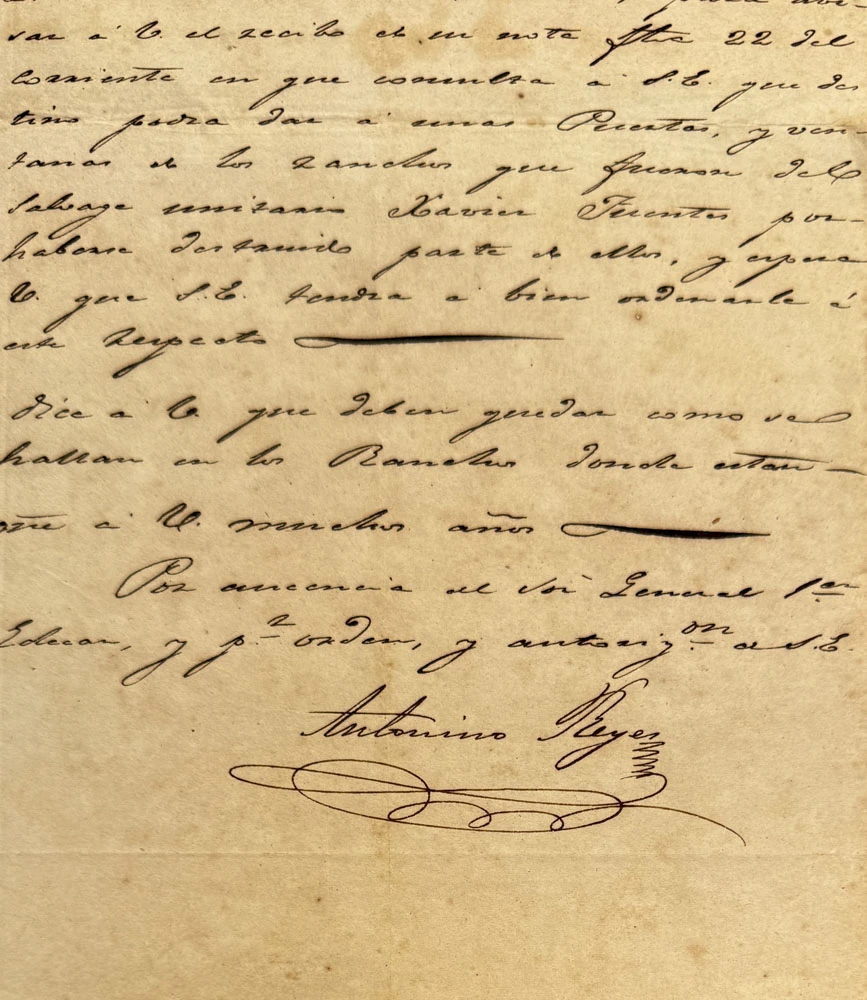 sar á V. el recibo de su nota fha 22 del
corriente en que consulta á S.E. que des
tino podra dar á unas Puertas, y ven-
tanas de los ranchos que fueron del
Salvage unitario Xavier Fuentes por-
haberse destruido parte de ellos, y espera
V. que S.E. tendra á bien ordenarle á
este respecto
dice á V. que deben quedar como se
hallan en los Ranchos donde estan-
á V. muchos años
Por ausencia del Sor General 1er
Edecan, y pr orden, y autorizon de S.E.
Antonino Reyes